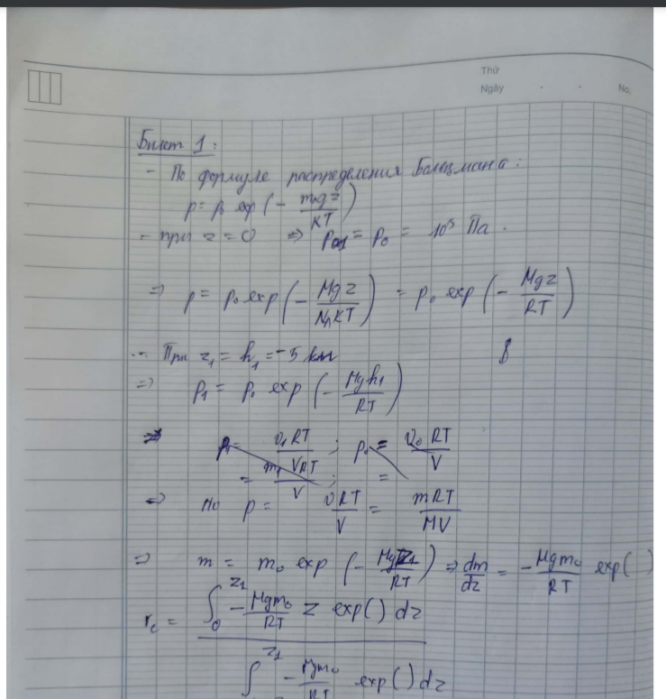 Thứ
Ngày No.
Билет 1:
- По формуле распределения Больцмана:
p = p₀ exp(- m₀gz/KT)
- при z = 0 ⇒ p₀₁ = p₀ = 10⁵ Па.
⇒ p = p₀ exp(- Mgz/N_A KT) = p₀ exp(- Mgz/RT)
- При z₁ = h₁ = -5 км
⇒ p₁ = p₀ exp(- Mgh₁/RT)
p₁ = υ₁RT/V ; p₀ = υ₀RT/V
= m₁ VRT/V ; =
⇒ Но p = υRT/V = mRT/MV
⇒ m = m₀ exp(- Mgz₁/RT) ⇒ dm/dz = - Mgm₀/RT exp( )
r_c = ∫₀^z₁ - Mgm₀/RT z exp( ) dz
∫^z₁ - Mgm₀/RT exp( ) dz